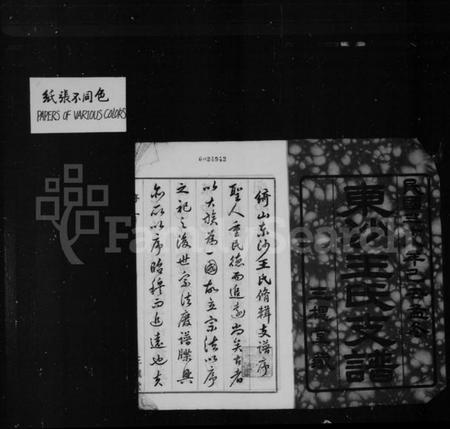 紙張不同色
PAPERS OF VARIOUS COLORS
6024942
倚山東沙王氏脩輯支譜序
聖人重民德而追遠尚矣古者
以大族為一國故立宗法以序
之祀之後世宗法廢譜牒興
亦所以序昭穆而追遠也夫
東沙王氏支譜
三槐堂
FamilySearch